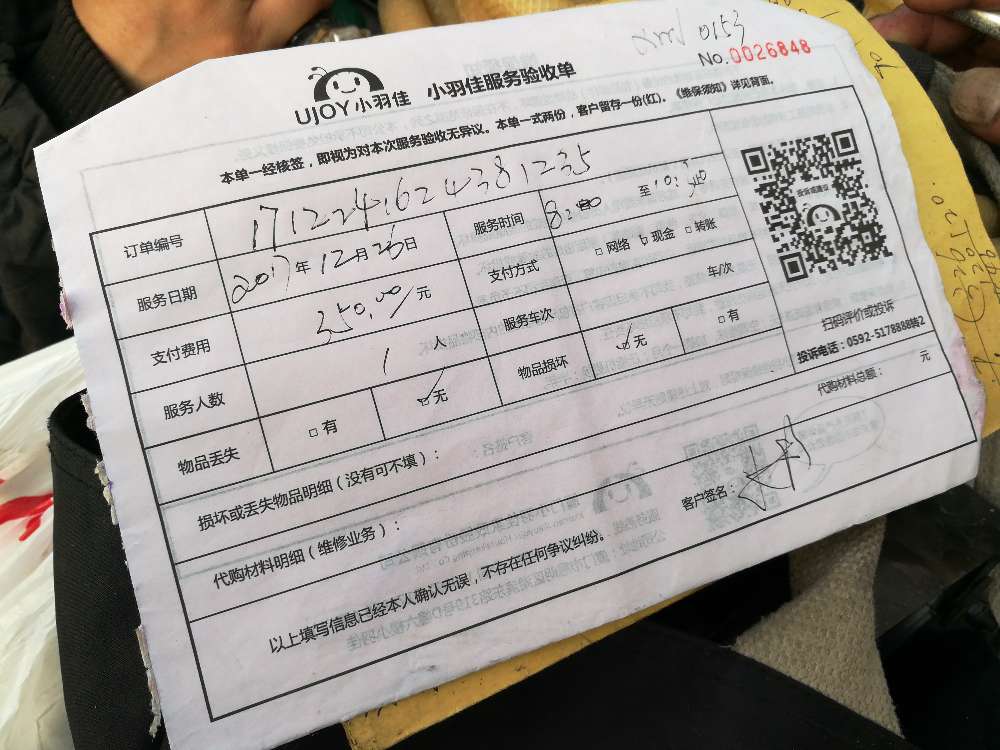 0153
No.0026848
UJOY小羽佳 小羽佳服务验收单
本单一经核签,即视为对本次服务验收无异议。本单一式两份,客户留存一份(红)。《维保须知》详见背面。
订单编号 1712241624381235
服务日期 2017年12月26日 服务时间 8:00 至10:30
支付费用 350.00/元 支付方式 □网络 ☑现金 □转账
服务人数 1 人 服务车次 车/次
物品丢失 □有 ☑无 物品损坏 ☑无 □有
投诉或建议
扫码评价或投诉
投诉电话:0592-5178888转2
损坏或丢失物品明细(没有可不填):
代购材料明细(维修业务): 代购材料总额: 元
以上填写信息已经本人确认无误,不存在任何争议纠纷。 客户签名: